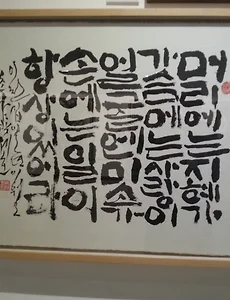 머리에는지혜
가슴에는사랑이
얼굴엔미소가
손에는일이
항상있어라